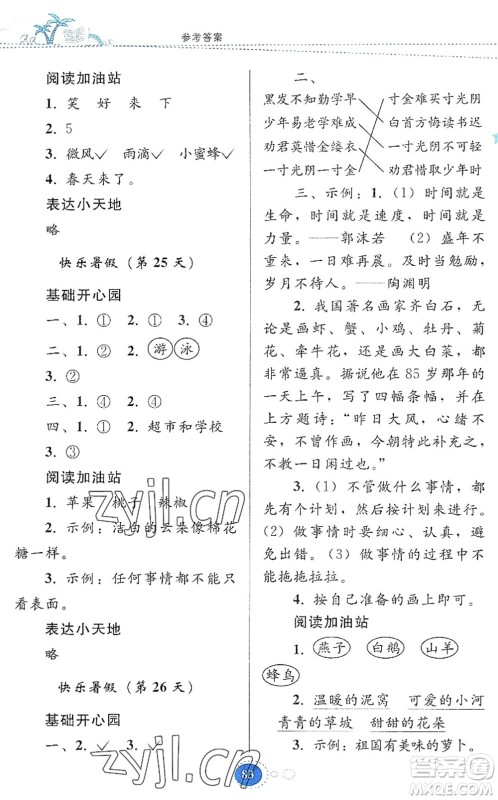 参考答案
阅读加油站
1. 笑 好 来 下
2. 5
3. 微风✓ 雨滴✓ 小蜜蜂✓
4. 春天来了。
表达小天地
略
快乐暑假（第 25 天）
基础开心园
一、1. ① 2. ① 3. ④
二、1. ② 2. 游 泳
3. ②
三、1. ④ 2. 超市和学校
3. ③
阅读加油站
1. 苹果 桃子 辣椒
2. 示例：洁白的云朵像棉花
糖一样。
3. 示例：任何事情都不能只
看表面。
表达小天地
略
快乐暑假（第 26 天）
基础开心园
一、1. ✓ 2. ✓
二、
黑发不知勤学早 寸金难买寸光阴
少年易老学难成 白首方悔读书迟
劝君莫惜金缕衣 一寸光阴不可轻
一寸光阴一寸金 劝君惜取少年时
三、示例：1.（1）时间就是
生命，时间就是速度，时间就是
力量。——郭沫若 （2）盛年不
重来，一日难再晨。及时当勉励，
岁月不待人。——陶渊明
2. 我国著名画家齐白石，无
论是画虾、蟹、小鸡、牡丹、菊
花、牵牛花，还是画大白菜，都
非常逼真。据说他在 85 岁那年的
一天上午，写了四幅条幅，并在
上方题诗：“昨日大风，心绪不
安，不曾作画，今朝特此补充之，
不教一日闲过也。”
3.（1）不管做什么事情，都
先有个计划，然后按计划来进行。
（2）做事情要细心、认真，避
免出错。（3）做事情的过程中不
能拖拖拉拉。
4. 按自己准备的画上即可。
阅读加油站
1. 燕子 白鹅 山羊
蜂鸟
2. 温暖的泥窝 可爱的小河
青青的草坡 甜甜的花朵
3. 示例：祖国有美味的萝卜。
83
zyjl.cn
zyjl.cn
答案圈
MXQE.COM